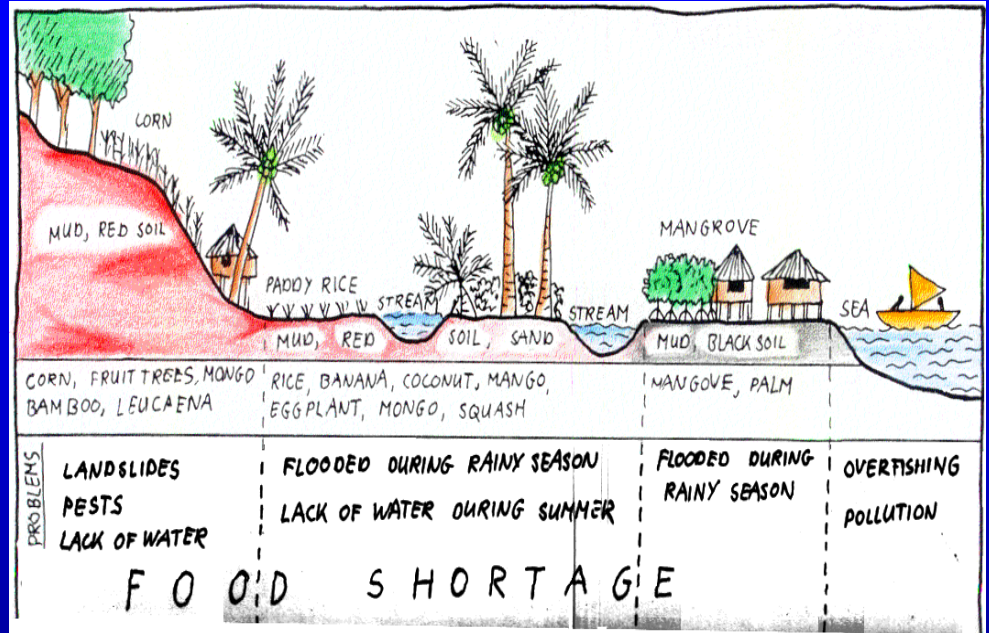 CORN
MUD, RED SOIL
PADDY RICE
STREAM
STREAM
MANGROVE
SEA
MUD, RED
SOIL, SAND
MUD, BLACK SOIL
CORN, FRUIT TREES, MONGO
BAMBOO, LEUCAENA
RICE, BANANA, COCONUT, MANGO,
EGGPLANT, MONGO, SQUASH
MANGOVE, PALM
PROBLEMS
LANDSLIDES
PESTS
LACK OF WATER
FLOODED DURING RAINY SEASON
LACK OF WATER DURING SUMMER
FLOODED DURING
RAINY SEASON
OVERFISHING
POLLUTION
FOOD SHORTAGE